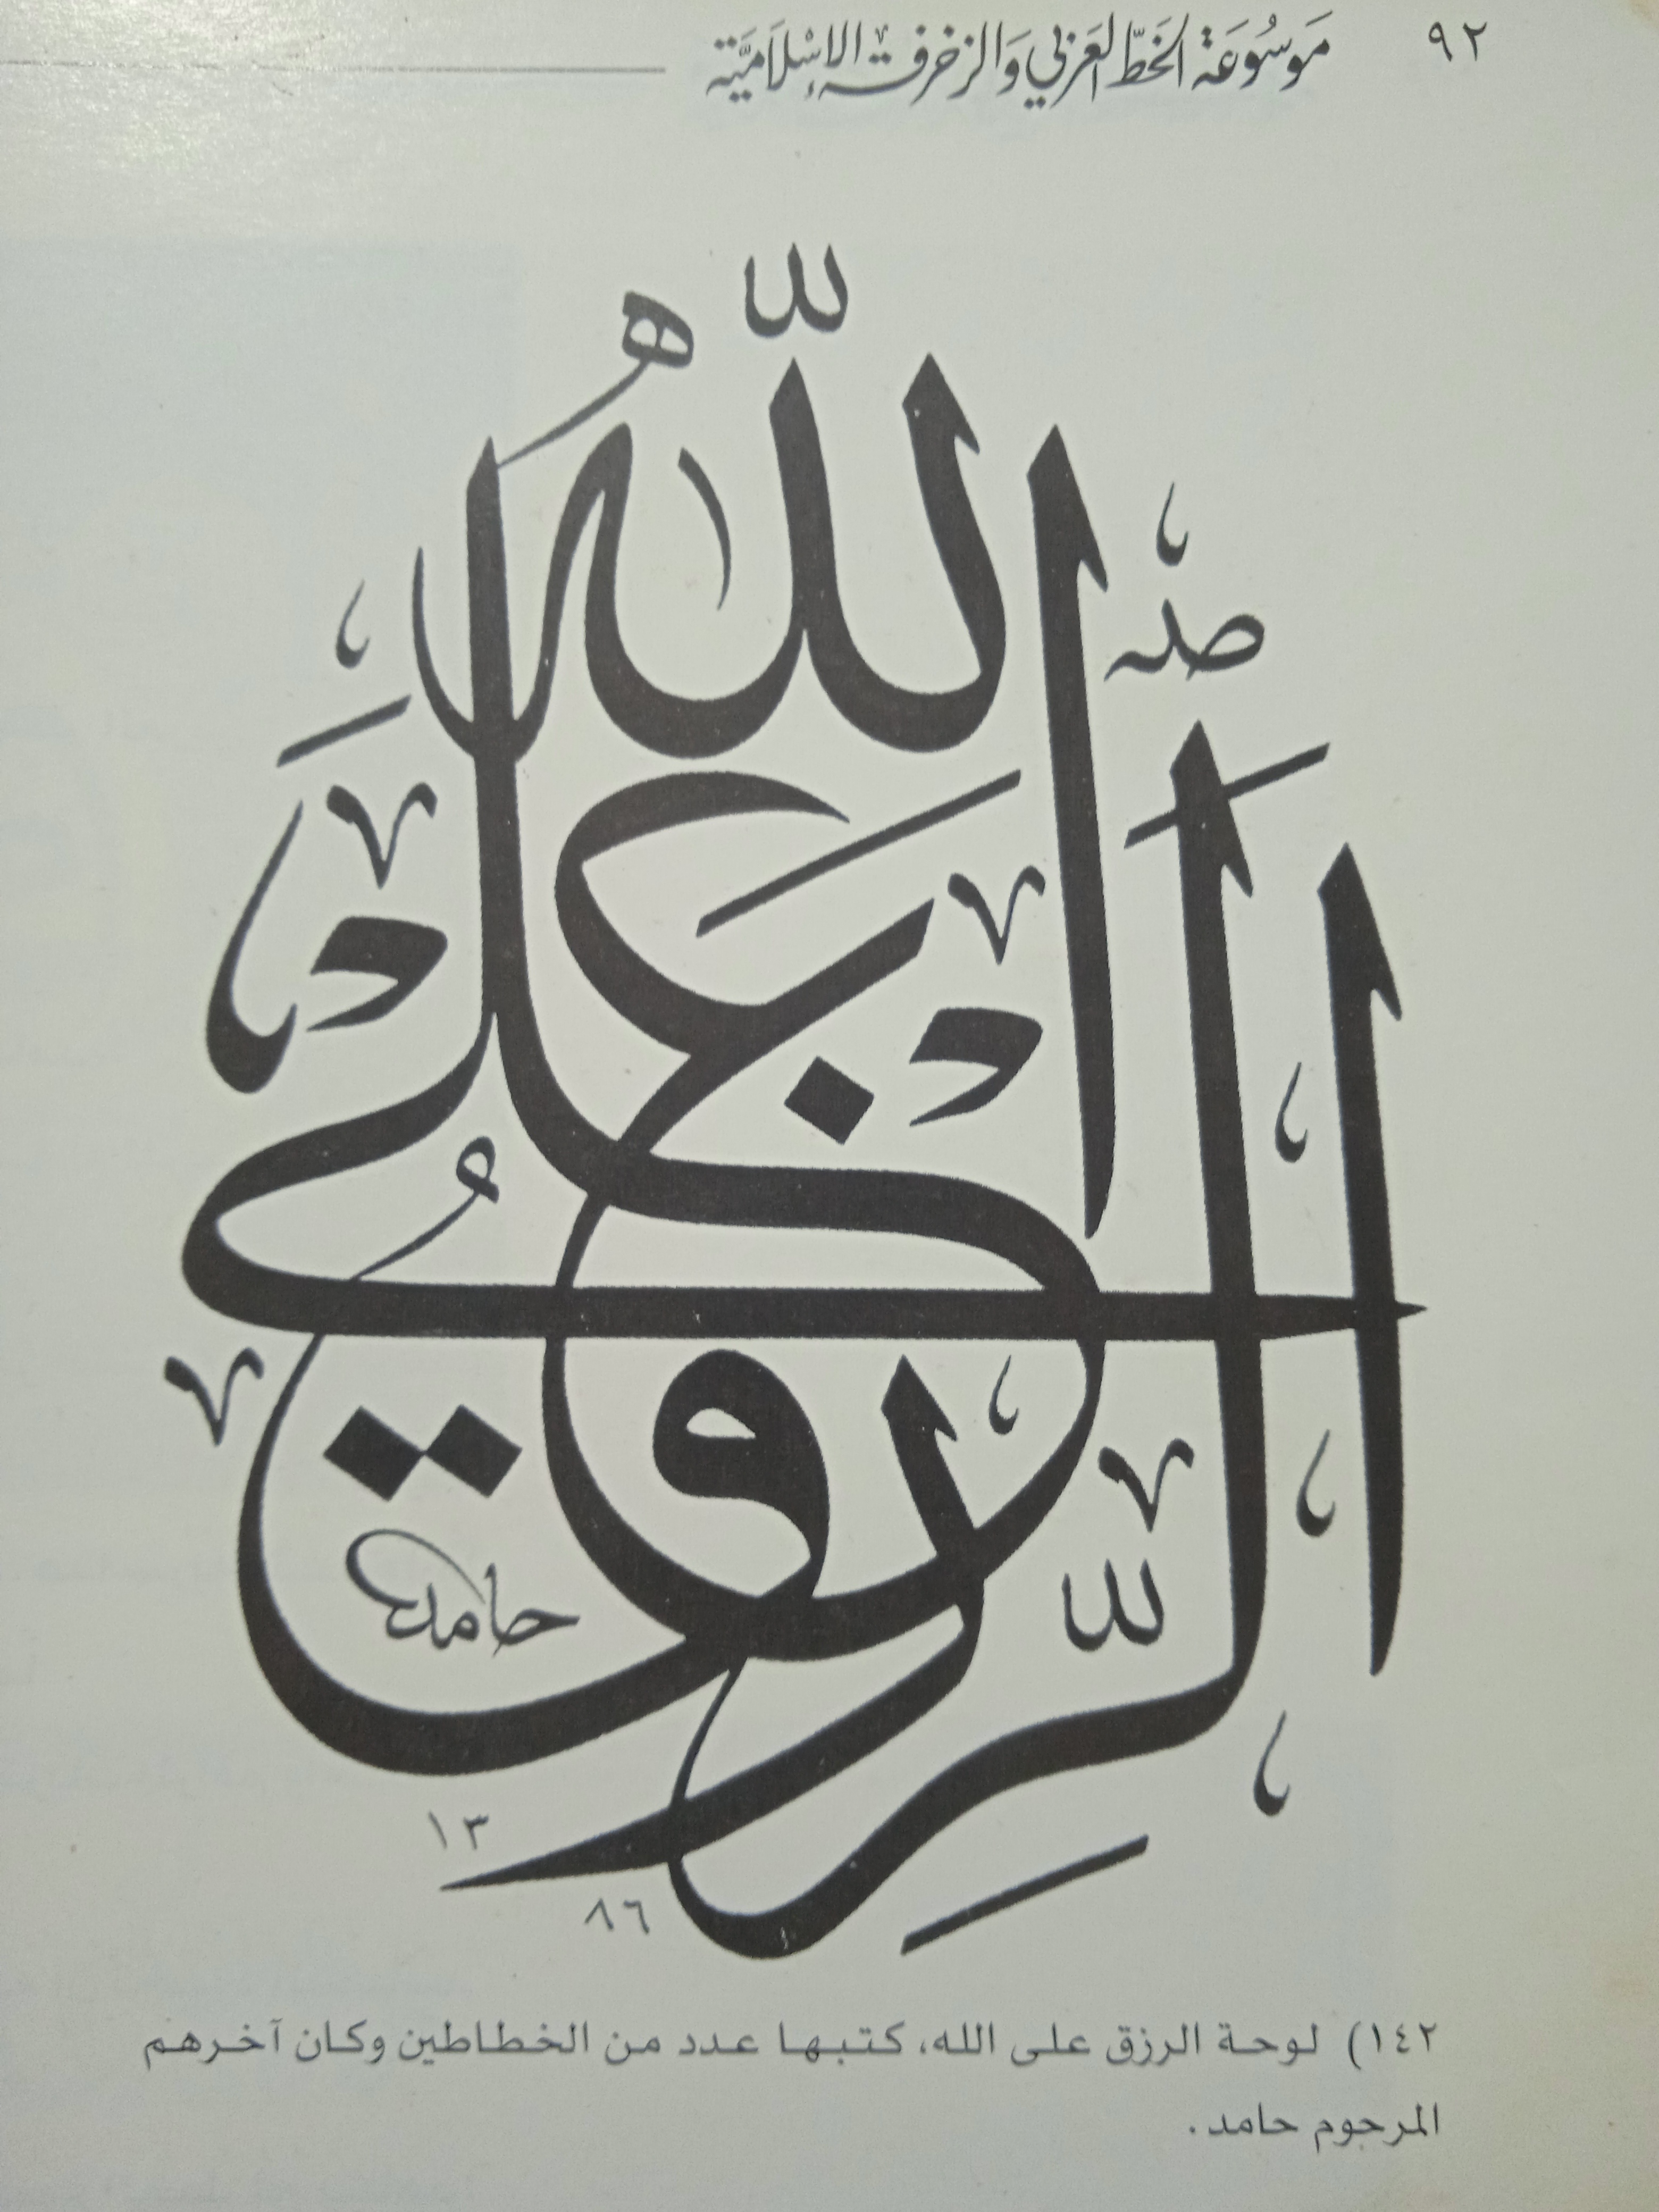 ٩٢ مَوسُوعَة الخَطّ العَرَبي وَالزخرفة الإسْلَاميَّة
الرزق على الله
حامد
١٣
٨٦
١٤٢) لوحة الرزق على الله، كتبها عدد من الخطاطين وكان آخرهم
المرجوم حامد.